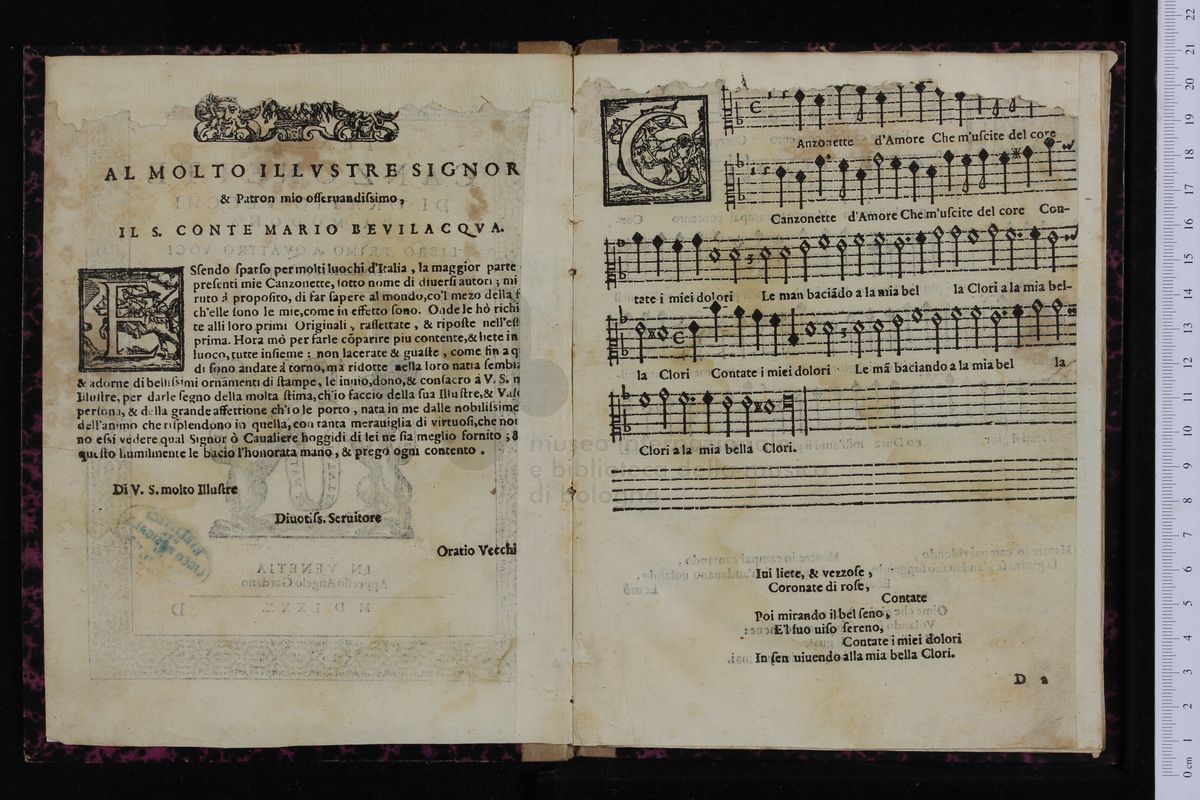 AL MOLTO ILLVSTRE SIGNOR
& Patron mio osseruandissimo,
IL S. CONTE MARIO BEVILACQVA.
ESsendo sparso per molti luochi d'Italia, la maggior parte
presenti mie Canzonette, sotto nome di diuersi autori; mi
ruto à proposito, di far sapere al mondo, co'l mezo della
ch'elle sono le mie, come in effetto sono. Onde le hò richi
te alli loro primi Originali, rassettate, & riposte nell'est
prima. Hora mò per farle cõparire piu contente, & liete in
luoco, tutte insieme: non lacerate & guaste, come fin a q
di sono andate à torno, mà ridotte nella loro natia sembi
& adorne di bellissimi ornamenti di stampe, le inuio, dono, & consacro à V. S.
Illustre, per darle segno della molta stima, ch'io faccio della sua Illustre, & Valo
persona, & della grande affettione ch'io le porto, nata in me dalle nobilissime
dell'animo che risplendono in quella, con tanta merauiglia di virtuosi, che non
no essi vedere qual Signor ò Caualiere hoggidi di lei ne sia meglio fornito; &
questo humilmente le bacio l'honorata mano, & prego ogni contento.
Di V. S. molto Illustre
Diuotiss. Seruitore
Oratio Vecchi
CAnzonette d'Amore Che m'uscite del core
Canzonette d'Amore Che m'uscite del core Con-
tate i miei dolori Le man baciãdo a la mia bel la Clori a la mia bel-
la Clori Contate i miei dolori Le mã baciando a la mia bel la
Clori a la mia bella Clori.
Iui liete, & vezzose,
Coronate di rose,
Contate
Poi mirando il bel seno,
E'l suo uiso sereno,
Contate i miei dolori
In sen uiuendo alla mia bella Clori.
D 2
museo internazionale
e biblioteca della musica
di bologna